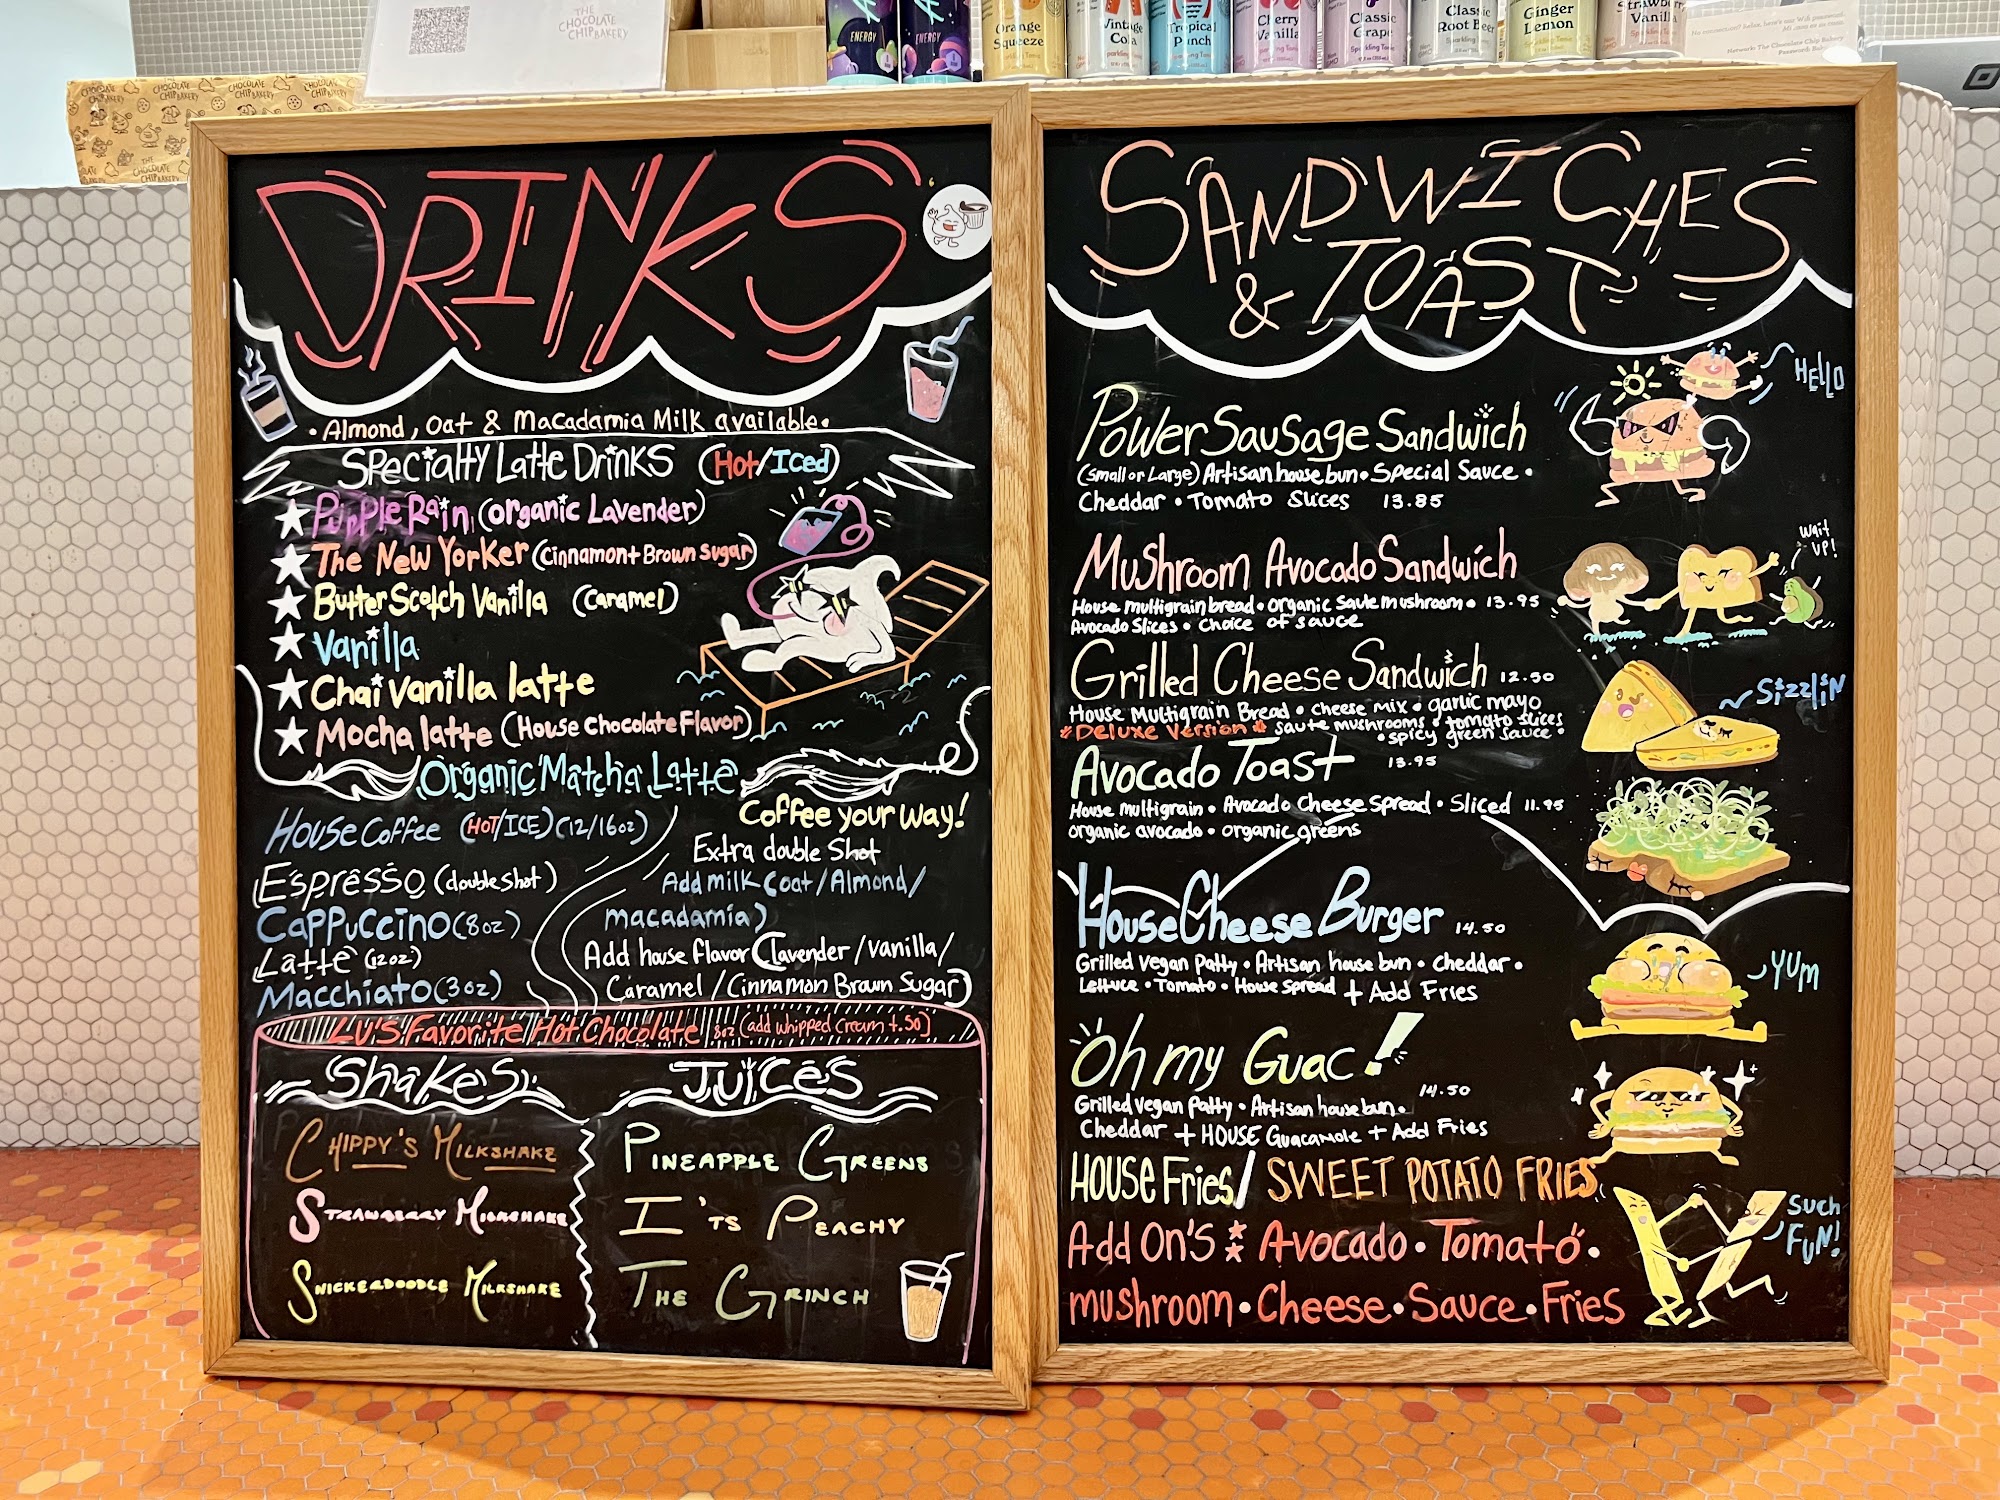 THE
CHOCOLATE
CHIP BAKERY
ENERGY
ENERGY
Orange
Squeeze
Vintage
Cola
Tropical
Punch
Cherry
Vanilla
Classic
Grape
Classic
Root Beer
Ginger
Lemon
Strawberry
Vanilla
Network: The Chocolate Chip Bakery
DRINKS
• Almond, Oat & Macadamia Milk available •
Specialty Latte Drinks (Hot/Iced)
★ Purple Rain (organic Lavender)
★ The New Yorker (Cinnamon + Brown sugar)
★ Butter Scotch Vanilla (Caramel)
★ Vanilla
★ Chai Vanilla latte
★ Mocha latte (House Chocolate Flavor)
Organic Matcha Latte
House Coffee (HOT/ICE) (12/16oz)
Espresso (double shot)
Cappuccino (8oz)
Latte (12oz)
Macchiato (3oz)
Coffee your way!
Extra double Shot
Add milk (oat/Almond/
macadamia)
Add house flavor (lavender/vanilla/
Caramel/Cinnamon Brown Sugar)
Lu's Favorite Hot Chocolate 8oz (add whipped cream +.50)
Shakes
Chippy's Milkshake
Strawberry Milkshake
Snickerdoodle Milkshake
Juices
Pineapple Greens
I'ts Peachy
The Grinch
SANDWICHES
& TOAST
HELLO
Power Sausage Sandwich
(Small or Large) Artisan house bun • Special Sauce •
Cheddar • Tomato Slices 13.85
Mushroom Avocado Sandwich
House multigrain bread • organic Saute mushroom • 13.95
Avocado Slices • Choice of sauce
wait
up!
Grilled Cheese Sandwich 12.50
House Multigrain Bread • cheese mix • garlic mayo
* Deluxe Version * saute mushrooms • tomato slices
• spicy green sauce •
SizzliN
Avocado Toast 13.95
House multigrain • Avocado Cheese Spread • Sliced 11.95
organic avocado • organic greens
House Cheese Burger 14.50
Grilled Vegan patty • Artisan house bun • Cheddar •
Lettuce • Tomato • House Spread + Add Fries
YUM
Oh my Guac! 14.50
Grilled Vegan patty • Artisan house bun •
Cheddar + HOUSE Guacamole + Add Fries
HOUSE Fries/ SWEET POTATO FRIES
Add On's : Avocado • Tomato •
mushroom • Cheese • Sauce • Fries
Such
FUN!